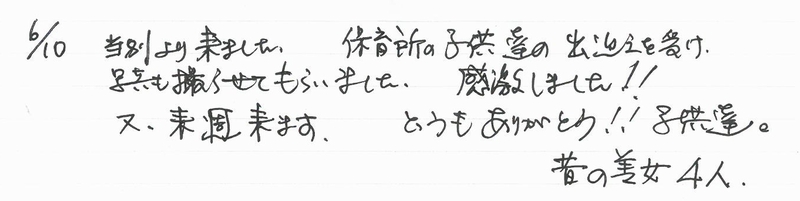 6/10 当別より来ました。 保育所の子供達の出迎えを受け、
写真も撮らせてもらいました。 感激しました!!
又、来週来ます。 どうもありがとう!! 子供達。
昔の美女4人.